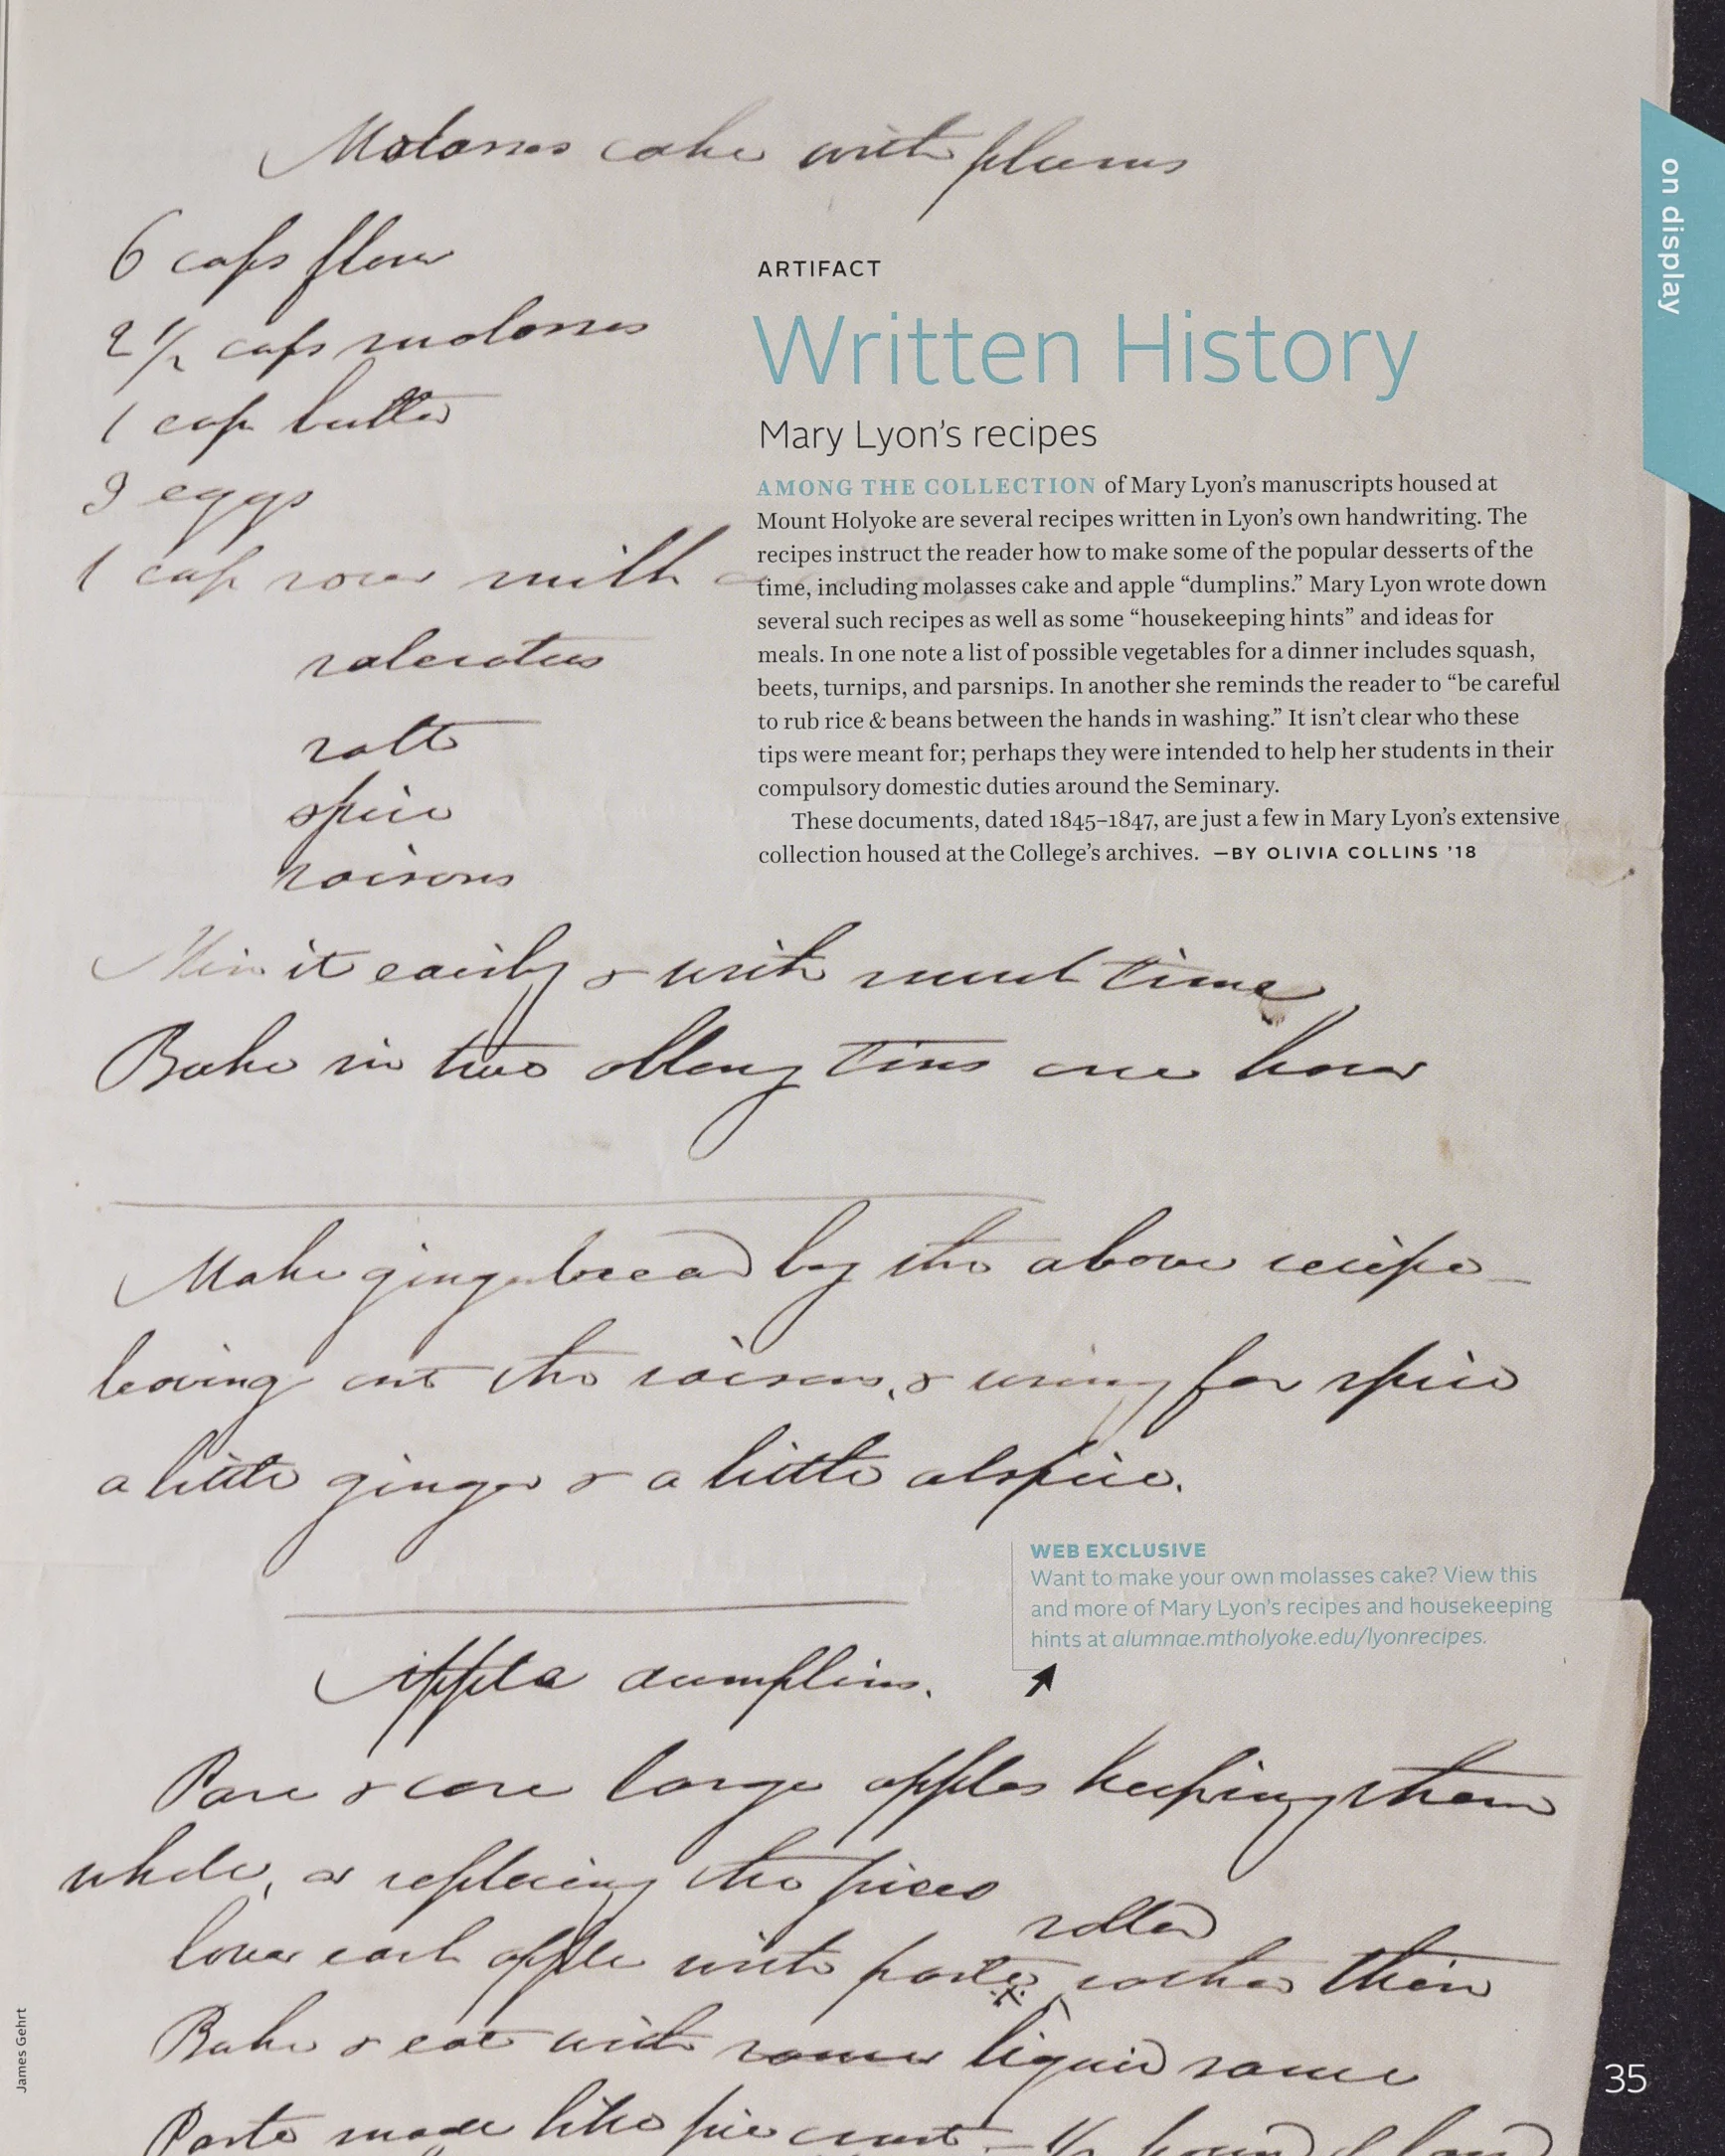 Molasses cake with plums
6 cups flour
2 1/2 cups molasses
1 cup butter
3 eggs
1 cup sour milk
saleratus
salt
spice
raisins
ARTIFACT
Written History
Mary Lyon's recipes
AMONG THE COLLECTION of Mary Lyon's manuscripts housed at
Mount Holyoke are several recipes written in Lyon's own handwriting. The
recipes instruct the reader how to make some of the popular desserts of the
time, including molasses cake and apple “dumplins.” Mary Lyon wrote down
several such recipes as well as some “housekeeping hints” and ideas for
meals. In one note a list of possible vegetables for a dinner includes squash,
beets, turnips, and parsnips. In another she reminds the reader to “be careful
to rub rice & beans between the hands in washing.” It isn't clear who these
tips were meant for; perhaps they were intended to help her students in their
compulsory domestic duties around the Seminary.
These documents, dated 1845–1847, are just a few in Mary Lyon's extensive
collection housed at the College's archives. —BY OLIVIA COLLINS '18
on display
it easily & with much time
Bake in two oblong tins one hour
Make gingerbread by the above recipe
leaving out the raisins, & using for spice
a little ginger & a little alspice.
WEB EXCLUSIVE
Want to make your own molasses cake? View this
and more of Mary Lyon's recipes and housekeeping
hints at alumnae.mtholyoke.edu/lyonrecipes.
Apple dumplins.
Pare & core large apples keeping them
whole, or replacing the pieces
rolled
Cover each apple with paste rather thin
Bake & eat with liquid sauce
Paste made like pie crust – 1/2 pound of lard
James Gehrt
35